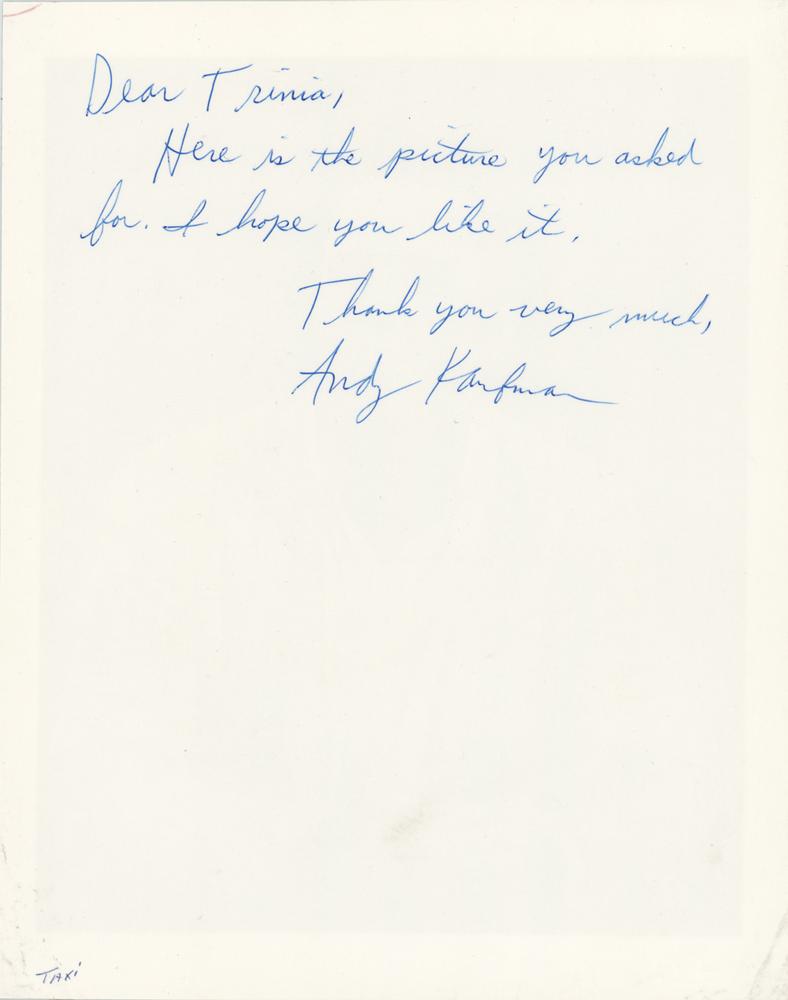 Dear Trinia,
Here is the picture you asked
for. I hope you like it.
Thank you very much,
Andy Kaufman
TAXI